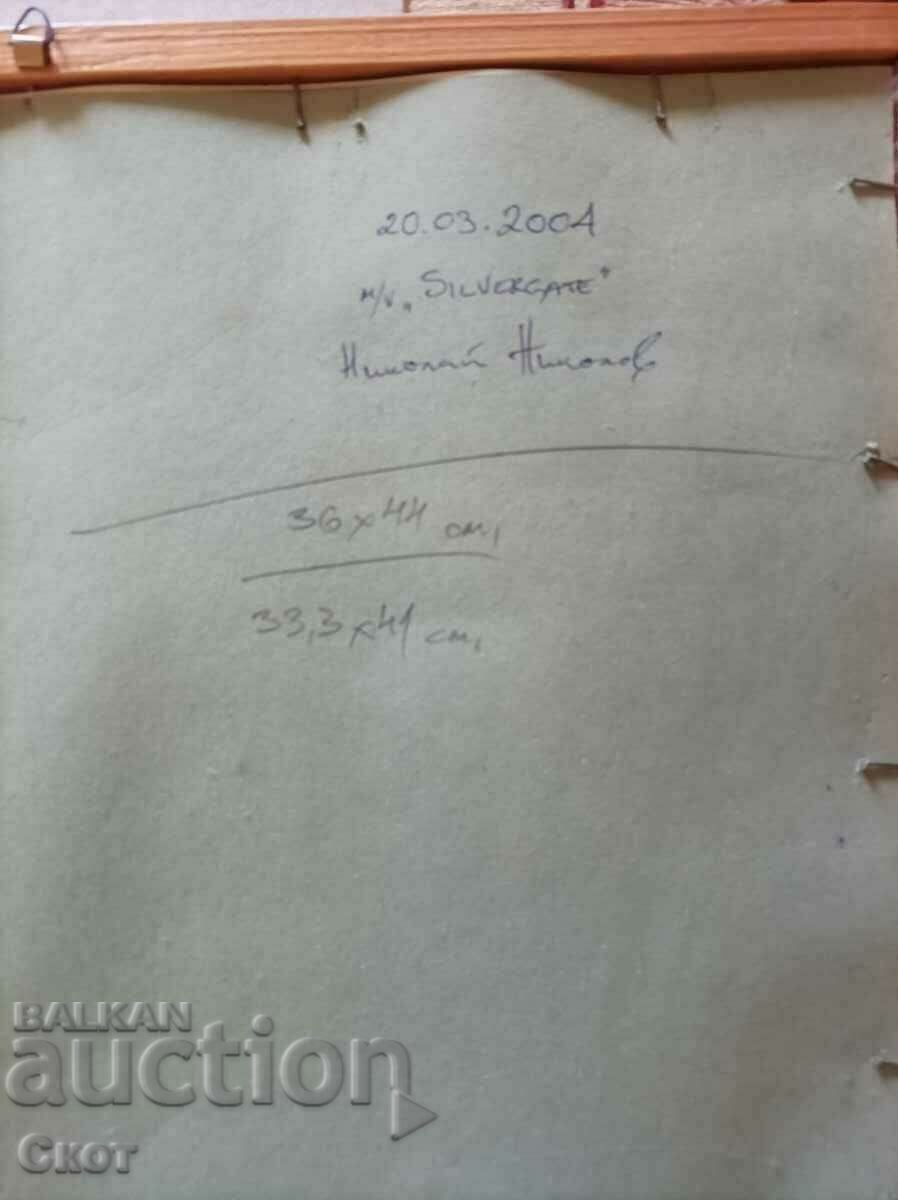 20.03.2004
м/v „SILVERGATE"
Николай Николов
36x44 см,
33,3x41 см,
BALKAN
auction
Скот